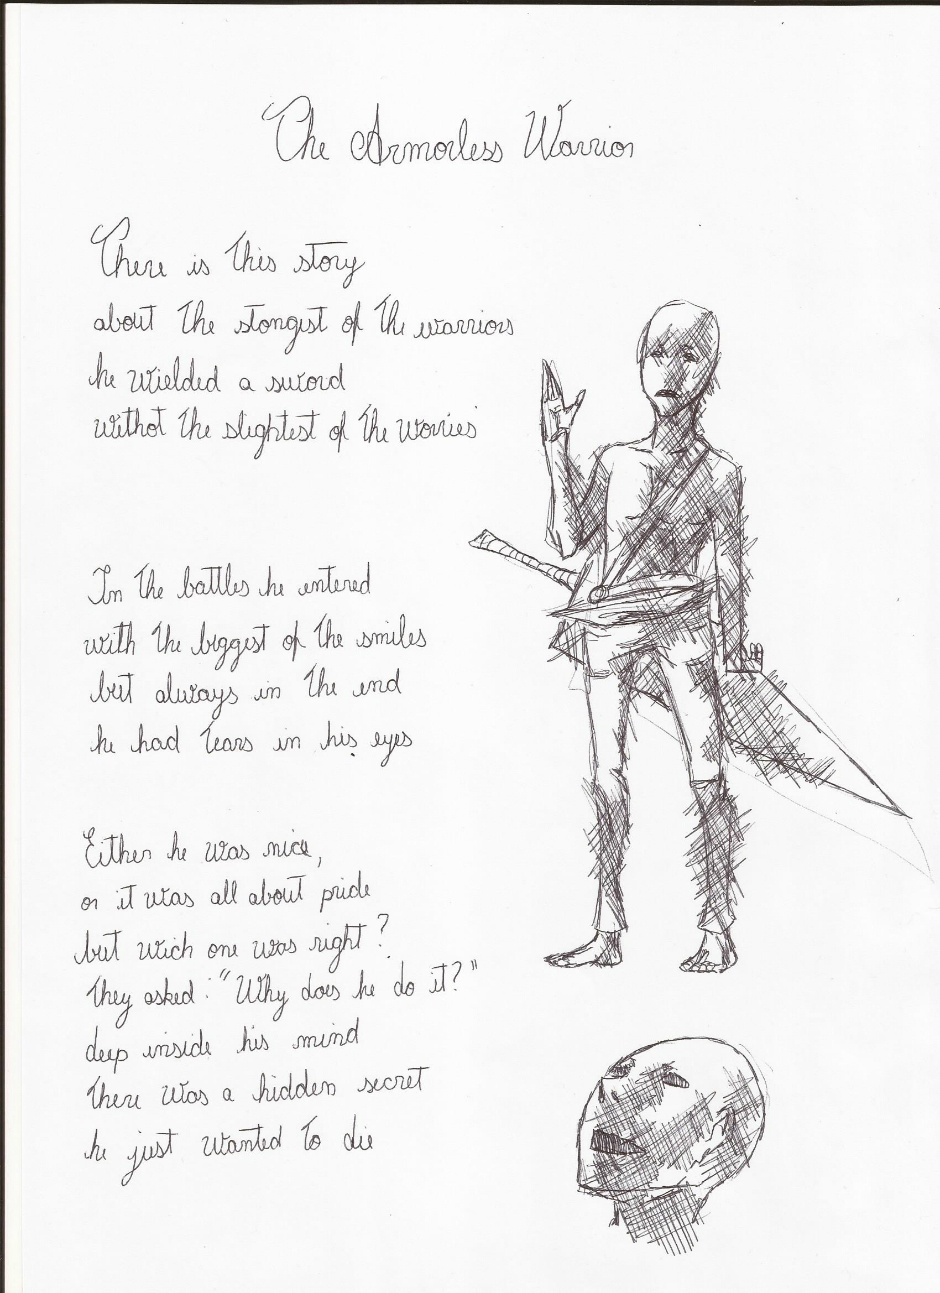 The Armorless Warrior
There is this story
about the stongest of the warriors
he wielded a sword
withot the slightest of the worries
In the battles he entered
with the biggest of the smiles
but always in the end
he had tears in his eyes
Either he was nice,
or it was all about pride
but wich one was right?
they asked: "Why does he do it?"
deep inside his mind
there was a hidden secret
he just wanted to die